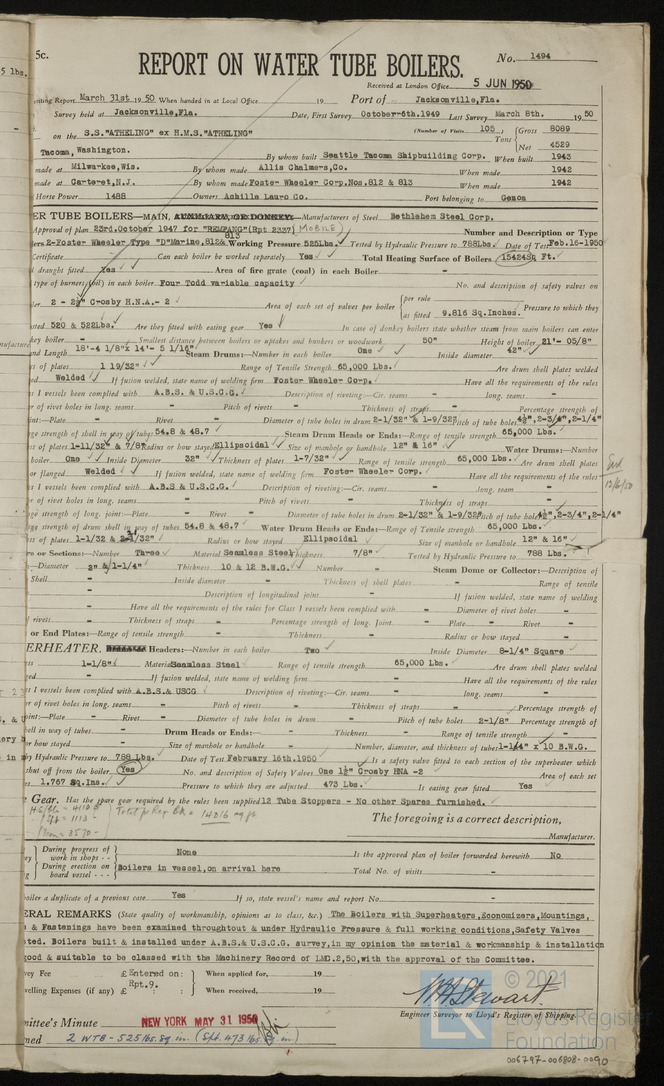 5c.
REPORT ON WATER TUBE BOILERS.
No. 1494
5 lbs.
Received at London Office 5 JUN 1950
riting Report March 31st 1950 When handed in at Local Office 19 Port of Jacksonville,Fla.
Survey held at Jacksonville,Fla. Date, First Survey October-6th.1949 Last Survey March 8th. 1950
on the S.S."ATHELING" ex H.M.S."ATHELING" (Number of Visits 105 ) Tons Gross 8089 Net 4529
Tacoma, Washington. By whom built Seattle Tacoma Shipbuilding Corp. When built 1943
made at Milwaukee,Wis. By whom made Allis Chalmers,Co. When made 1942
made at Carteret,N.J. By whom made Foster Wheeler Corp.Nos.812 & 813 When made 1942
Horse Power 1488 Owners Achille Lauro Co. Port belonging to Genoa
ER TUBE BOILERS—MAIN, AUXILIARY, OR DONKEY.—Manufacturers of Steel Bethlehem Steel Corp.
Approval of plan 23rd.October 1947 for "REMPANG"(Rpt 2337) (MOBILE) Number and Description or Type
lers 2-Foster Wheeler Type "D"Marine,812& 813 Working Pressure 525Lbs. Tested by Hydraulic Pressure to 788Lbs Date of Test Feb.16-1950
Certificate - Can each boiler be worked separately Yes Total Heating Surface of Boilers 15424Sq Ft.
d draught fitted Yes Area of fire grate (coal) in each Boiler -
type of burners (oil) in each boiler Four Todd variable capacity No. and description of safety valves on
ler 2 - 2½" Crosby H.N.A.- 2 Area of each set of valves per boiler per rule as fitted 9.816 Sq.Inches. Pressure to which they
usted 520 & 522Lbs. Are they fitted with easing gear Yes In case of donkey boilers state whether steam from main boilers can enter
key boiler - Smallest distance between boilers or uptakes and bunkers or woodwork 50" Height of boiler 21'- 05/8"
and Length 18'-4 1/8"x 14'- 5 1/16" Steam Drums:—Number in each boiler One Inside diameter 42"
ss of plates 1 19/32" Range of Tensile Strength 65,000 Lbs. Are drum shell plates welded
ed Welded If fusion welded, state name of welding firm Foster Wheeler Corp. Have all the requirements of the rules
ss I vessels been complied with A.B.S. & U.S.C.G. Description of riveting:—Cir. seams - long. seams -
er of rivet holes in long. seams - Pitch of rivets - Thickness of straps - Percentage strength of
int:—Plate - Rivet - Diameter of tube holes in drum 2-1/32" & 1-9/32" Pitch of tube holes 4½",2-3/4",2-1/4"
age strength of shell in way of tubes 54.8 & 48.7 Steam Drum Heads or Ends:—Range of tensile strength 65,000 Lbs.
ss of plates 1-11/32" & 7/8" Radius or how stayed Ellipsoidal Size of manhole or handhole 12" & 16" Water Drums:—Number
boiler One Inside Diameter 32" Thickness of plates 1-7/32" Range of tensile strength 65,000 Lbs. Are drum shell plates
or flanged Welded If fusion welded, state name of welding firm Foster Wheeler Corp. Have all the requirements of the
ss I vessels been complied with A.B.S & U.S.C.G. Description of riveting:—Cir. seams - long. seam -
er of rivet holes in long. seams - Pitch of rivets - Thickness of straps -
ge strength of long. joint:—Plate - Rivet - Diameter of tube holes in drum 2-1/32" & 1-9/32" Pitch of tube holes 4½",2-3/4",2-1/4
age strength of drum shell in way of tubes 54.8 & 48.7 Water Drum Heads or Ends:—Range of Tensile strength 65,000 Lbs.
ss of plates 1-1/32 & 2-1/32" Radius or how stayed Ellipsoidal Size of manhole or handhole 12" & 16"
rs or Sections:—Number Three Material Seamless Steel Thickness 7/8" Tested by Hydraulic Pressure to 788 Lbs.
—Diameter 2" & 1-1/4" Thickness 10 & 12 B.W.G. Number - Steam Dome or Collector:—Description of
Shell - Inside diameter - Thickness of shell plates - Range of tensile
- Description of longitudinal joint - If fusion welded, state name of welding
- Have all the requirements of the rules for Class I vessels been complied with - Diameter of rivet holes -
rivets - Thickness of straps - Percentage strength of long. Joint - Plate - Rivet -
or End Plates:—Range of tensile strength - Thickness - Radius or how stayed -
ERHEATER. Headers:—Number in each boiler Two Inside Diameter 8-1/4" Square
ss 1-1/8" Material Seamless Steel Range of tensile strength 65,000 Lbs. Are drum shell plates welded
ged - If fusion welded, state name of welding firm - Have all the requirements of the rules
ss I vessels been complied with A.B.S.& USCG Description of riveting:—Cir. seams - long. seams -
er of rivet holes in long. seams - Pitch of rivets - Thickness of straps - Percentage strength of
oint:—Plate - Rivet - Diameter of tube holes in drum - Pitch of tube holes 2-1/8" Percentage strength of
ell in way of tubes - Drum Heads or Ends:—Thickness - Range of tensile strength -
or how stayed - Size of manhole or handhole - Number, diameter, and thickness of tubes 1-1/4" x 10 B.W.G.
by Hydraulic Pressure to 788 Lbs. Date of Test February 16th.1950 Is a safety valve fitted to each section of the superheater which
shut off from the boiler Yes No. and description of Safety Valves One 1½" Crosby HNA -2 Area of each set
s 1.767 Sq.Ins. Pressure to which they are adjusted 473 Lbs. Is easing gear fitted Yes
e Gear. Has the spare gear required by the rules been supplied 12 Tube Stoppers - No other Spares furnished.
The foregoing is a correct description,
Manufacturer.
During progress of work in shops - - None Is the approved plan of boiler forwarded herewith No
During erection on board vessel - - - Boilers in vessel,on arrival here Total No. of visits -
boiler a duplicate of a previous case Yes If so, state vessel's name and report No. -
ERAL REMARKS (State quality of workmanship, opinions as to class, &c.) The Boilers with Superheaters,Economizers,Mountings,
s & Fastenings have been examined throughtout & under Hydraulic Pressure & full working conditions,Safety Valves
sted. Boilers built & installed under A.B.S.& U.S.C.G. survey,in my opinion the material & workmanship & installation
good & suitable to be classed with the Machinery Record of LMC.2,50,with the approval of the Committee.
vey Fee £ Entered on: When applied for, 19
velling Expenses (if any) £ Rpt.9. When received, 19
W H Stewart
Engineer Surveyor to Lloyd's Register of Shipping.
mittee's Minute NEW YORK MAY 31 1950
ned 2 WTB - 525 lbs.sq.in. (Spt. 473 lbs.sq.in.)
© 2021
Lloyd's Register
Foundation
006797-006808-0090